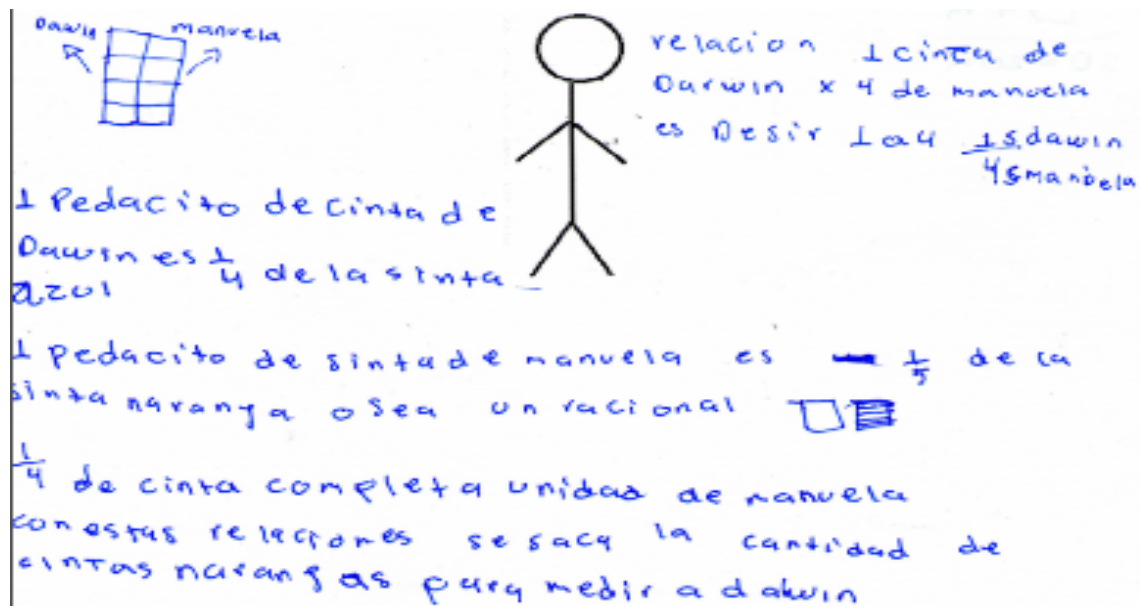 Dawin manuela
relacion 1 cinta de
Darwin x 4 de manuela
es Desir 1 a 4 1 s. dawin
4 s manbela
1 Pedacito de cinta de
Dawin es 1/4 de la sinta
azul
1 pedacito de sinta de manuela es 1/5 de la
sinta naranga o sea un racional
1/4 de cinta completa unidad de manuela
con estas relaciones se saca la cantidad de
cintas narangas para medir a dawin